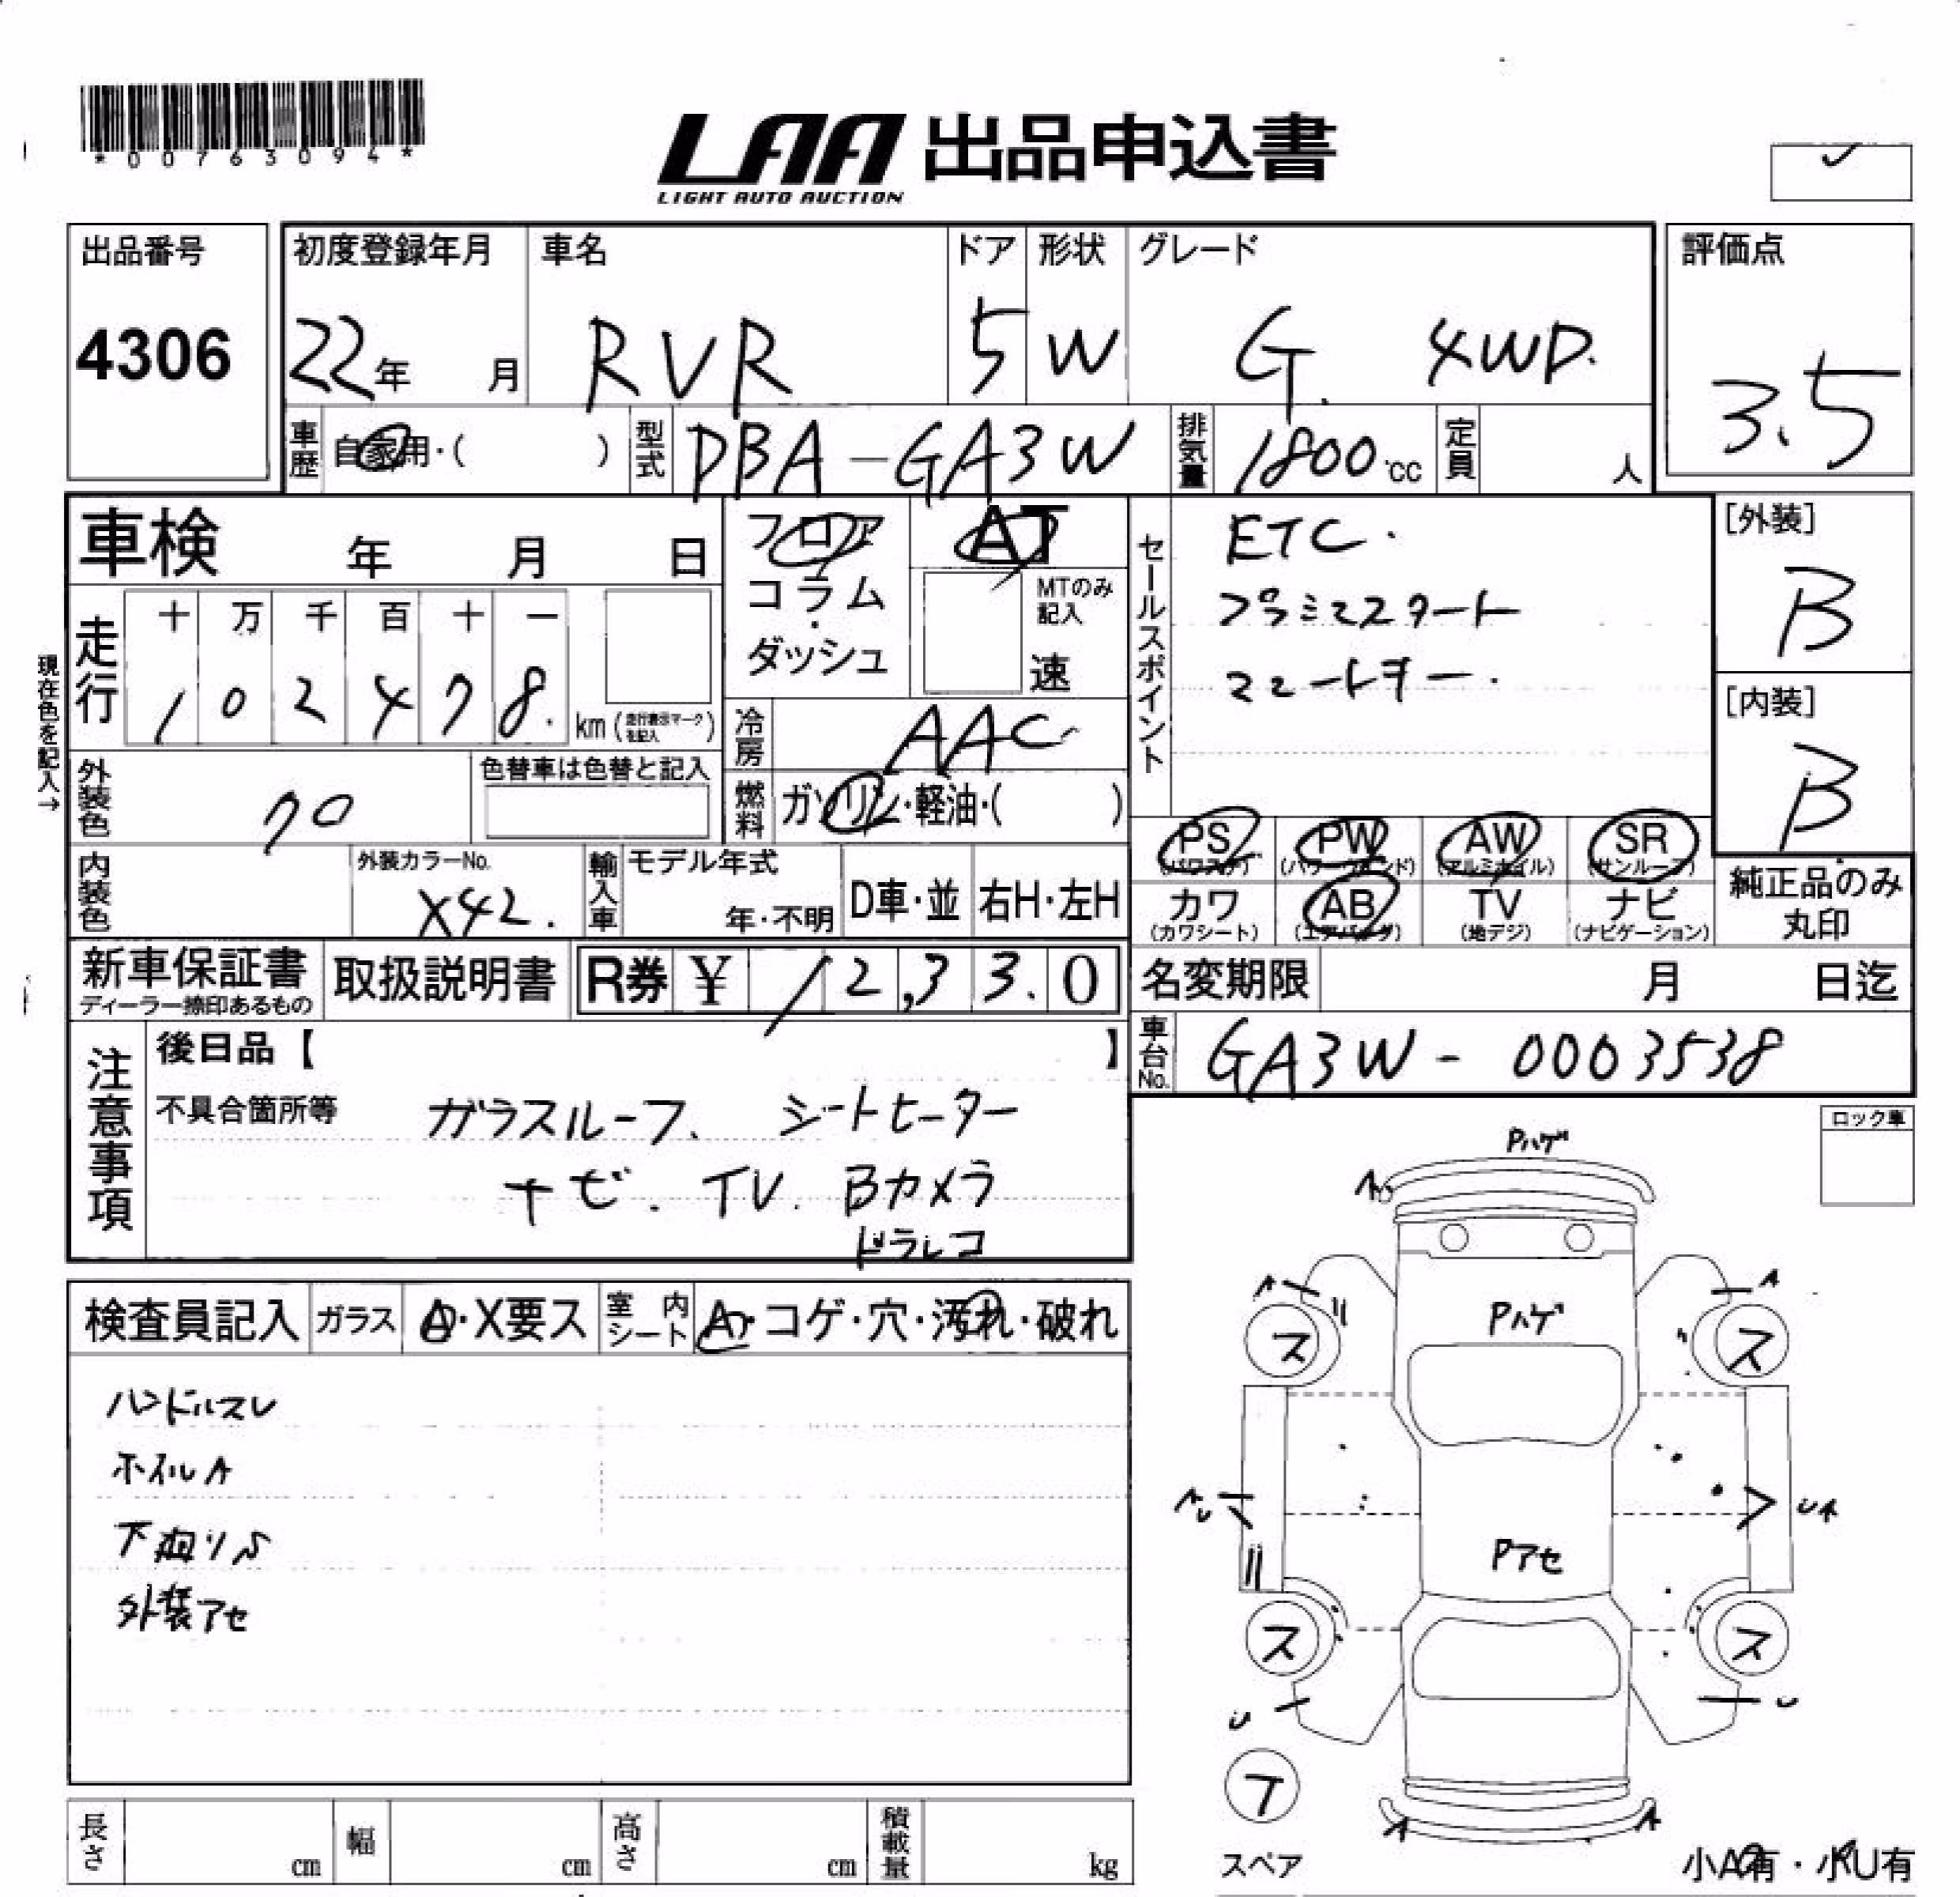 *00763094*
LAA 出品申込書
LIGHT AUTO AUCTION
出品番号
4306
初度登録年月
22年 月
車名
RVR
ドア
5
形状
W
グレード
G 4WD.
評価点
3.5
車歴 自家用・( )
型式 DBA-GA3W
排気量 1800cc
定員 人
車検 年 月 日
フロア
コラム
ダッシュ
AT
MTのみ
記入
速
セールスポイント
ETC.
[外装]
B
[内装]
B
現在色を記入→
走行
十 万 千 百 十 一
1 0 2 4 7 8. km (走行表示マークを記入)
冷房 AAC
外装色 クロ
色替車は色替と記入
燃料 ガソリン・軽油・( )
内装色
外装カラーNo.
X42.
輸入車
モデル年式
年・不明
D車・並
右H・左H
PS PW AW SR
(パワステ) (パワーウィンド) (アルミホイル) (サンルーフ)
カワ AB TV ナビ
(カワシート) (エアバッグ) (地デジ) (ナビゲーション)
純正品のみ
丸印
新車保証書
ディーラー捺印あるもの
取扱説明書
R券 ¥ 12,33.0
名変期限 月 日迄
車台No. GA3W-0003538
注意事項
後日品【 】
不具合箇所等 ガラスルーフ、 シートヒーター
ナビ. TV. Bカメラ
ドラレコ
ロック車
検査員記入
ガラス A・X要ス
室内シート A・コゲ・穴・汚れ・破れ
ハンドルスレ
ホイルA
下廻りS
外装アセ
Pハゲ
A
A A
Pハゲ
ス ス
Pアセ
ス ス
U U
T
スペア
A A
小A有・小U有
長さ cm
幅 cm
高さ cm
積載量 kg